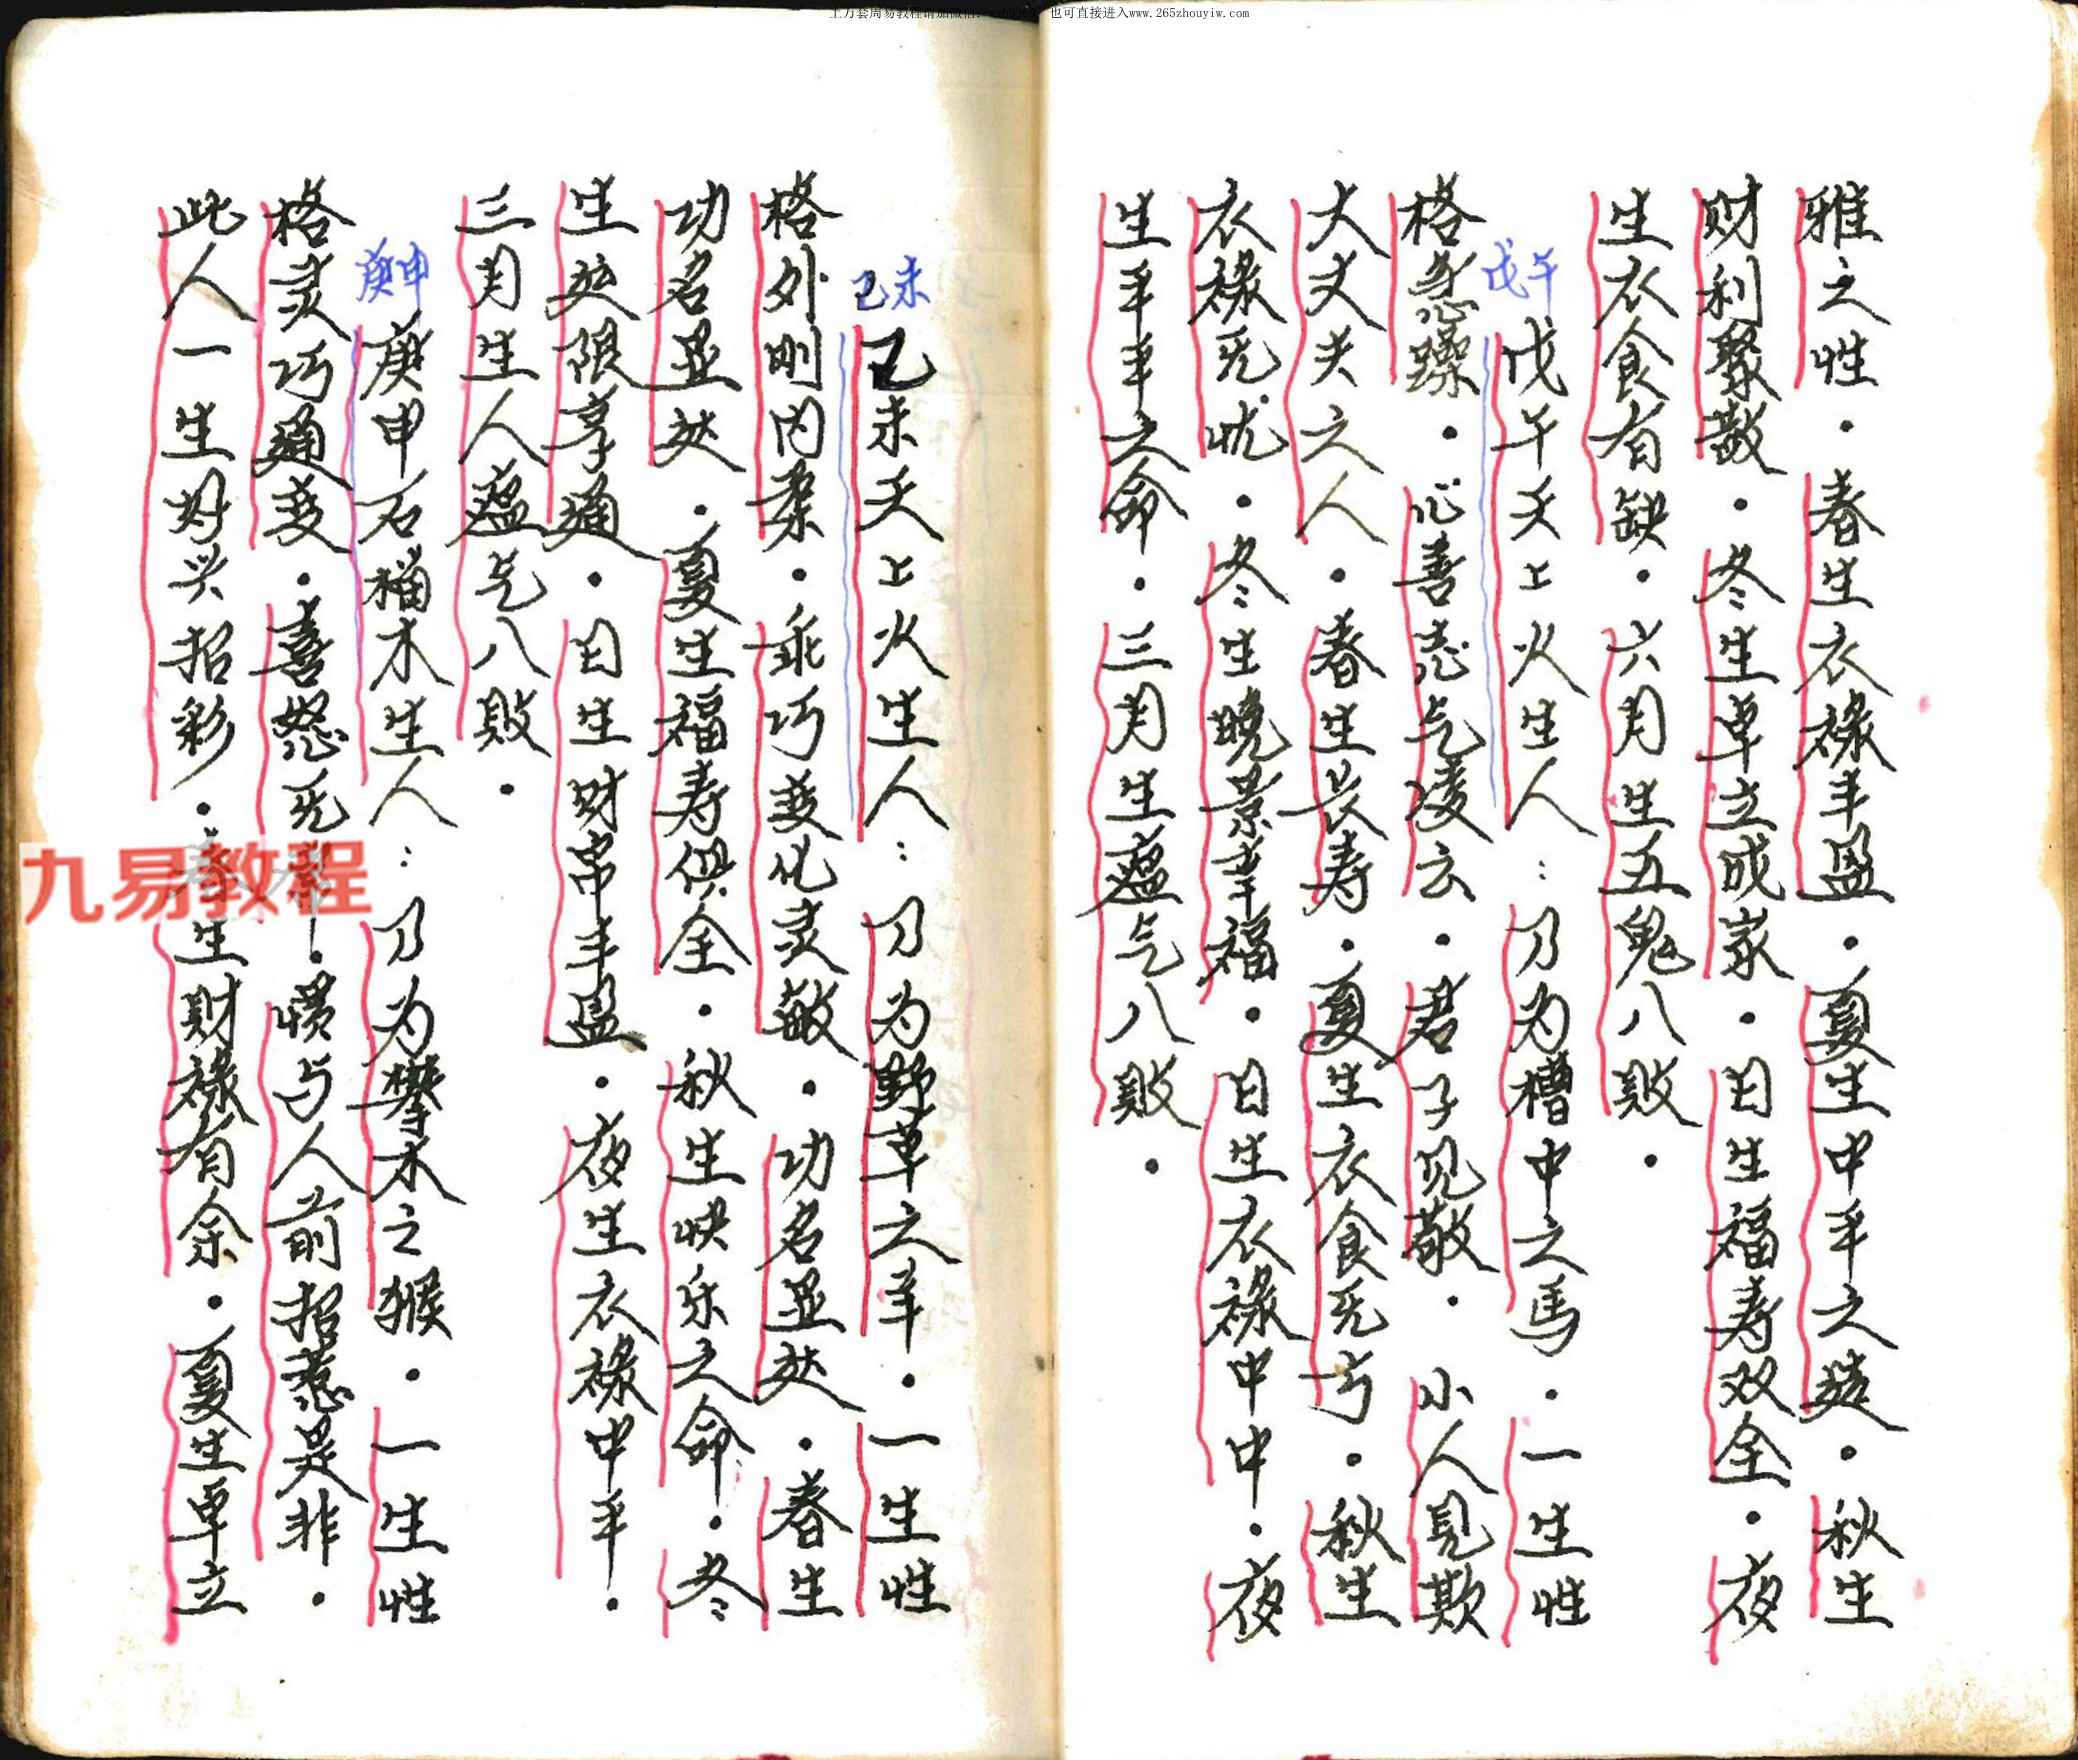 也可直接进入www.265zhouyiw.com
雅之性．春生衣禄丰盈．夏生中平之造．秋生
财利聚散．冬生卓立成家．日生福寿双全．夜
生衣食有缺．六月生五鬼八败．
戊午
戊午天上火生人：乃为槽中之马．一生性
格急躁．心善志气凌云．君子见敬．小人見欺
大丈夫之人．春生长寿．夏生衣食无亏．秋生
衣禄无忧．冬生晚景幸福．日生衣禄中中．夜
生平平之命．三月生瘟气八败．
己未
己未天上火生人：乃为野草之羊．一生性
格外刚内柔．乖巧变化灵敏．功名显达．春生
功名显达．夏生福寿俱全．秋生快乐之命．冬
生处限享通．日生财帛丰盈．夜生衣禄中平．
三月生人瘟气八败．
庚申
庚申石榴木生人：乃为攀木之猴．一生性
格灵巧通变．喜怒无．惯与人前招惹是非．
此人一生时兴招彩．春生财禄有余．夏生卓立
九易教程